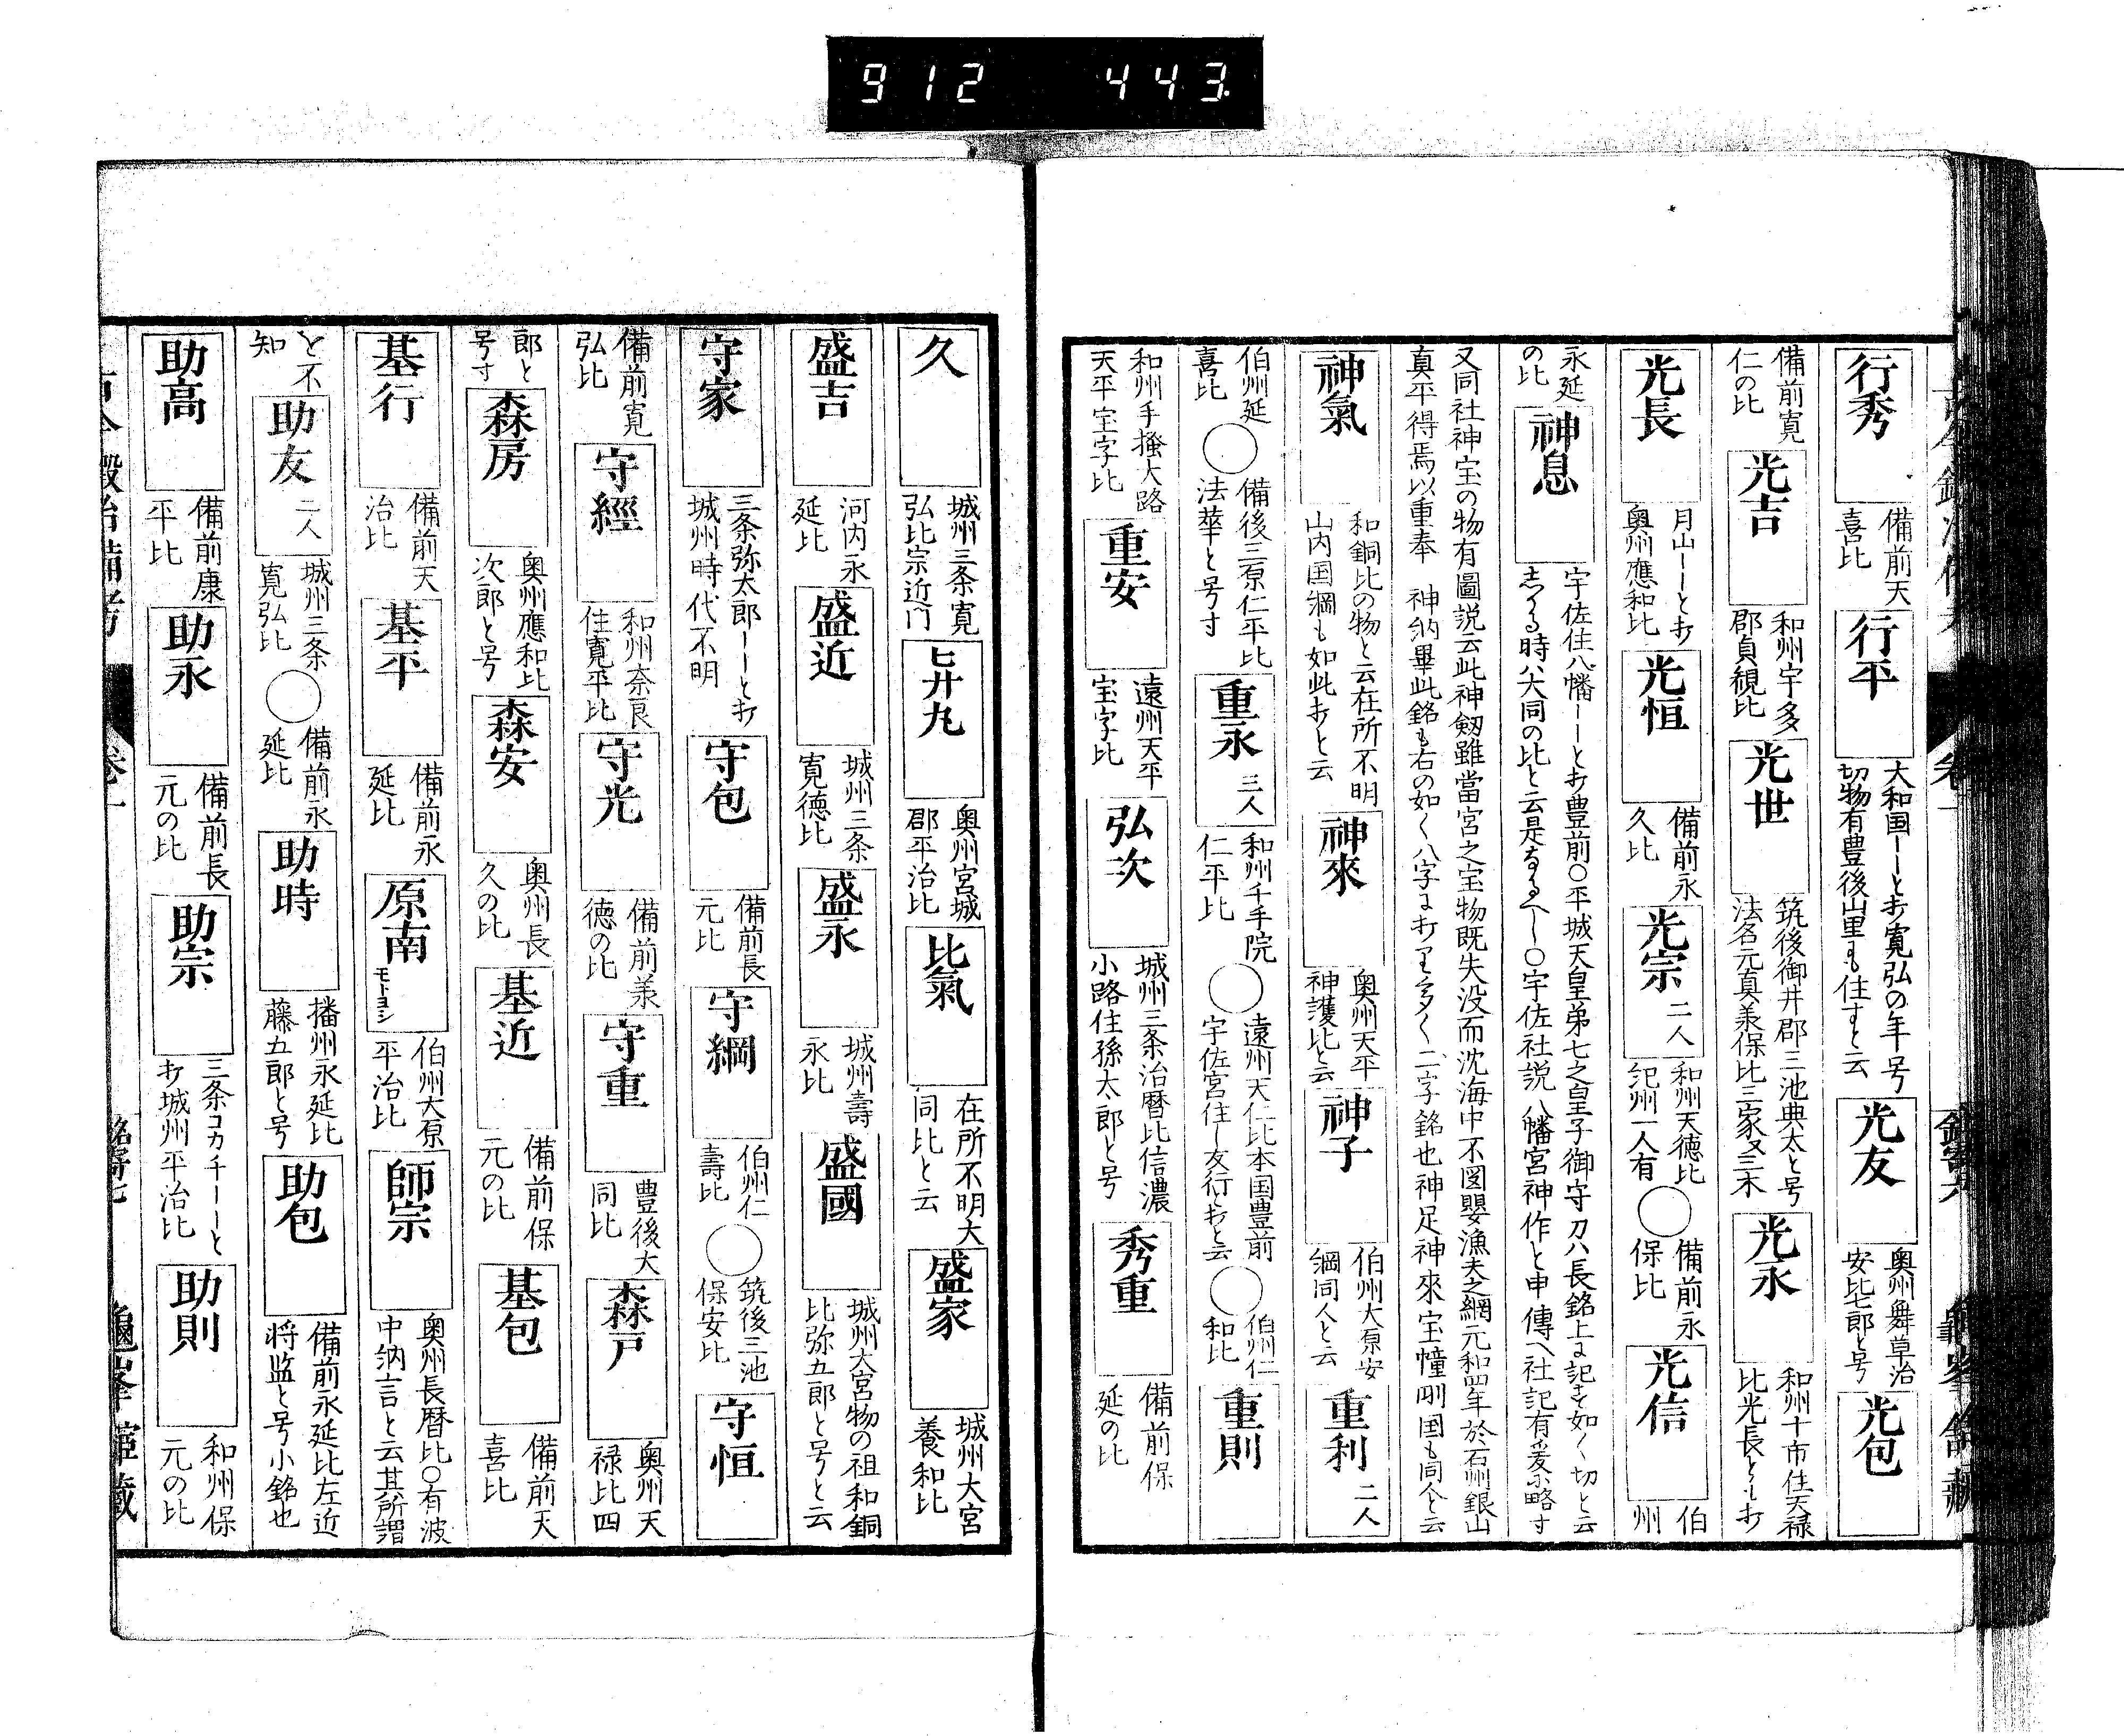 912 443.
行秀 備前天喜比 行平 大和国ーーと打寛弘の年号切物有豊後山里にも住すと云 光友 奥州舞草治安比七郎と号 光包
備前寛仁の比 光吉 和州宇多郡貞観比 光世 筑後御井郡三池典太と号法名元真義保比三家又三木 光永 和州十市住天禄比光長とも打
光長 月山ーーと打奥州應和比 光恒 備前永久比 光宗 二人 和州天徳比紀州一人有 ○ 備前永保比 光信 伯州
永延の比 神息 宇佐住八幡ーーと打豊前○平城天皇弟七之皇子御守刀ハ長銘上に記す如く切と云ゑる時ハ大同の比と云是なるへし○宇佐社説八幡宮神作と申傳へ社記有爰ニ略す
又同社神宝の物有圖説云此神剱雖當宮之宝物既失没而沈海中不図嬰漁夫之網元和四年於石州銀山
真平得焉以重奉 神納畢此銘も右の如く八字に打り多く二字銘也神足神來宝幢剛国も同人と云
神氣 和銅比の物と云在所不明山内国綱も如此打と云 神來 奥州天平神護比と云 神子 伯州大原安綱同人と云 重利 二人
伯州延喜比 ○ 備後三原仁平比法華と号す 重永 三人 和州千手院仁平比 ○ 遠州天仁比本国豊前宇佐宮住し友行と打と云 ○ 伯州仁和比 重則
和州手掻大路天平宝字比 重安 遠州天平宝字比 弘次 城州三条治暦比信濃小路住孫太郎と号 秀重 備前保延の比
久 城州三条寛弘比宗近門 匕廾九 奥州宮城郡平治比 比氣 在所不明大同比と云 盛家 城州大宮養和比
盛吉 河内永延比 盛近 城州三条寛徳比 盛永 城州壽永比 盛國 城州大宮物の祖和銅比弥五郎と号と云
守家 三条弥太郎ーーと打城州時代不明 守包 備前長元比 守綱 伯州仁壽比 ○ 筑後三池保安比 守恒
備前寛弘比 守經 和州奈良住寛平比 守光 備前義徳の比 守重 豊後大同比 森戸 奥州天禄比四
郎と号す 森房 奥州應和比次郎と号 森安 奥州長久の比 基近 備前保元の比 基包 備前天喜比
基行 備前天治比 基平 備前永延比 原南 モトヨシ 伯州大原平治比 師宗 奥州長暦比○有波中納言と云其所謂
を不知 助友 二人 城州三条寛弘比 ○ 備前永延比 助時 播州永延比藤五郎と号 助包 備前永延比左近将監と号小銘也
助高 備前康平比 助永 備前長元の比 助宗 三条コカチーーと打城州平治比 助則 和州保元の比
古今鍛冶備考 巻一 銘寄七 龜峯舘蔵